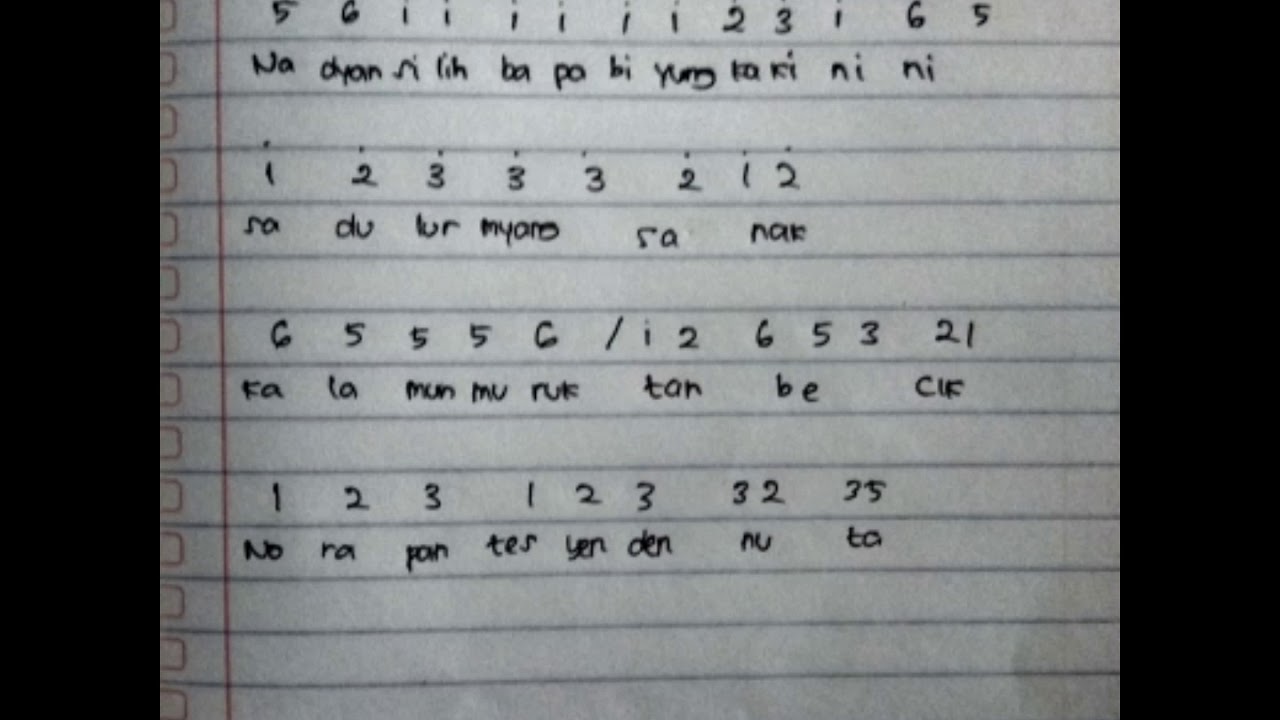 5 6 i i i i i i 2 3 i 6 5
Na dyan si lih ba pa bi yung ka ki ni ni
i 2̇ 3̇ 3̇ 3̇ 2̇ i 2̇
sa du lur myang sa nak
6 5 5 5 6 / i 2 6 5 3 21
ka la mun mu ruk tan be cik
1 2 3 1 2 3 32 35
No ra pan tes yen den nu ta